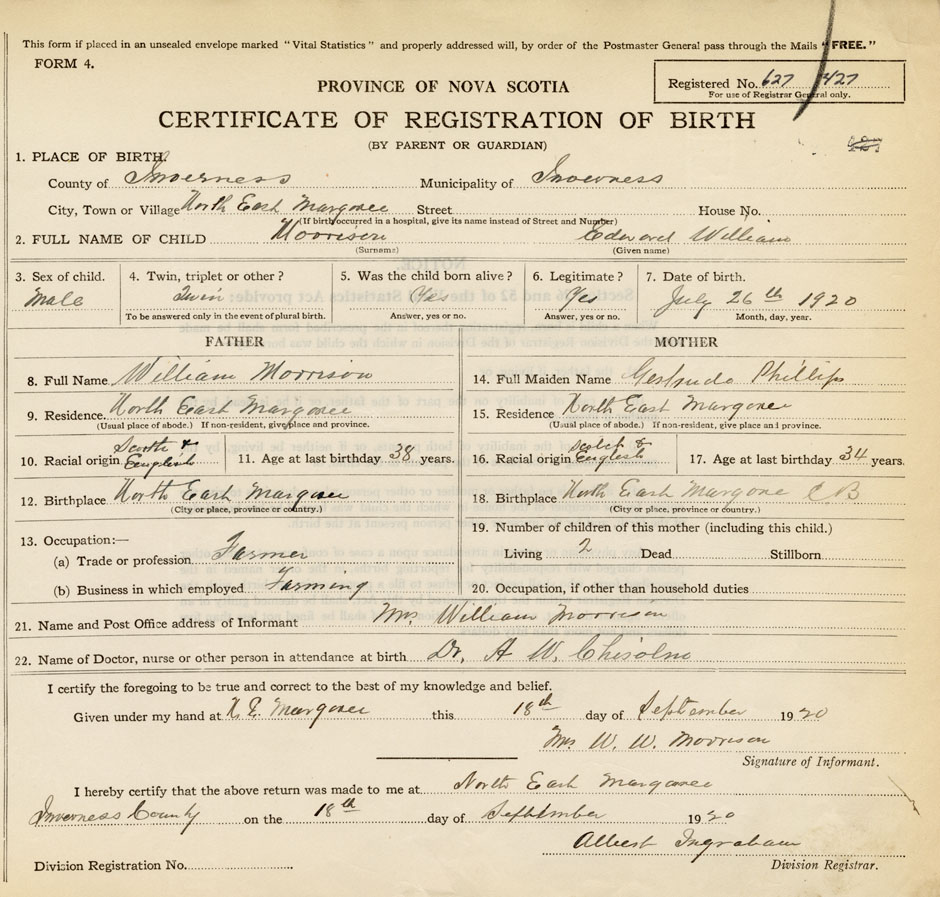 This form if placed in an unsealed envelope marked "Vital Statistics" and properly addressed will, by order of the Postmaster General pass through the Mails "FREE."
FORM 4.
PROVINCE OF NOVA SCOTIA
Registered No. 627 427
For use of Registrar General only.
CERTIFICATE OF REGISTRATION OF BIRTH
(BY PARENT OR GUARDIAN)
1. PLACE OF BIRTH.
County of Inverness Municipality of Inverness
City, Town or Village North East Margaree Street House No.
(If birth occurred in a hospital, give its name instead of Street and Number)
2. FULL NAME OF CHILD Morrison Edward William
(Surname) (Given name)
3. Sex of child. 4. Twin, triplet or other? 5. Was the child born alive? 6. Legitimate? 7. Date of birth.
Male Twin Yes Yes July 26th 1920
To be answered only in the event of plural birth. Answer, yes or no. Answer, yes or no. Month, day, year.
FATHER MOTHER
8. Full Name William Morrison
14. Full Maiden Name Gertrude Phillips
9. Residence. North East Margaree
(Usual place of abode.) If non-resident, give place and province.
15. Residence North East Margaree
(Usual place of abode.) If non-resident, give place and province.
10. Racial origin Scotch & English 11. Age at last birthday 38 years.
16. Racial origin Scotch & English 17. Age at last birthday 34 years.
12. Birthplace North East Margaree
(City or place, province or country.)
18. Birthplace North East Margaree CB
(City or place, province or country.)
13. Occupation:—
(a) Trade or profession Farmer
(b) Business in which employed Farming
19. Number of children of this mother (including this child.)
Living 2 Dead Stillborn
20. Occupation, if other than household duties
21. Name and Post Office address of Informant Mrs William Morrison
22. Name of Doctor, nurse or other person in attendance at birth Dr. A W. Chisolm
I certify the foregoing to be true and correct to the best of my knowledge and belief.
Given under my hand at N. E. Margaree this 18th day of September 1920
Mrs W. W. Morrison
Signature of Informant.
I hereby certify that the above return was made to me at North East Margaree
Inverness County on the 18th day of September 1920
Albert Ingraham
Division Registration No. Division Registrar.